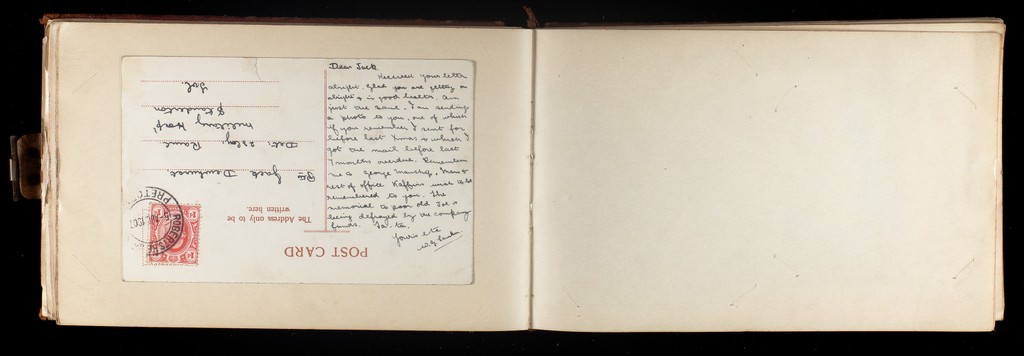 Dear Jack
Received your letter
alright. Glad you are getting on
alright & in good health. Am
just the same. I am sending
a photo to you, one of which
if you remember I sent for
before last Xmas & which I
got the mail before last
7 months overdue. Remember
me to George
rest of office Kaffirs wish to be
remembered to you. The
memorial to poor old is
being defrayed by the company
funds. Ta-ta.
Yours etc
POST CARD
The Address only to be
written here.
Pte Jack Dewhurst
Det.
Military Hosp
Standerton